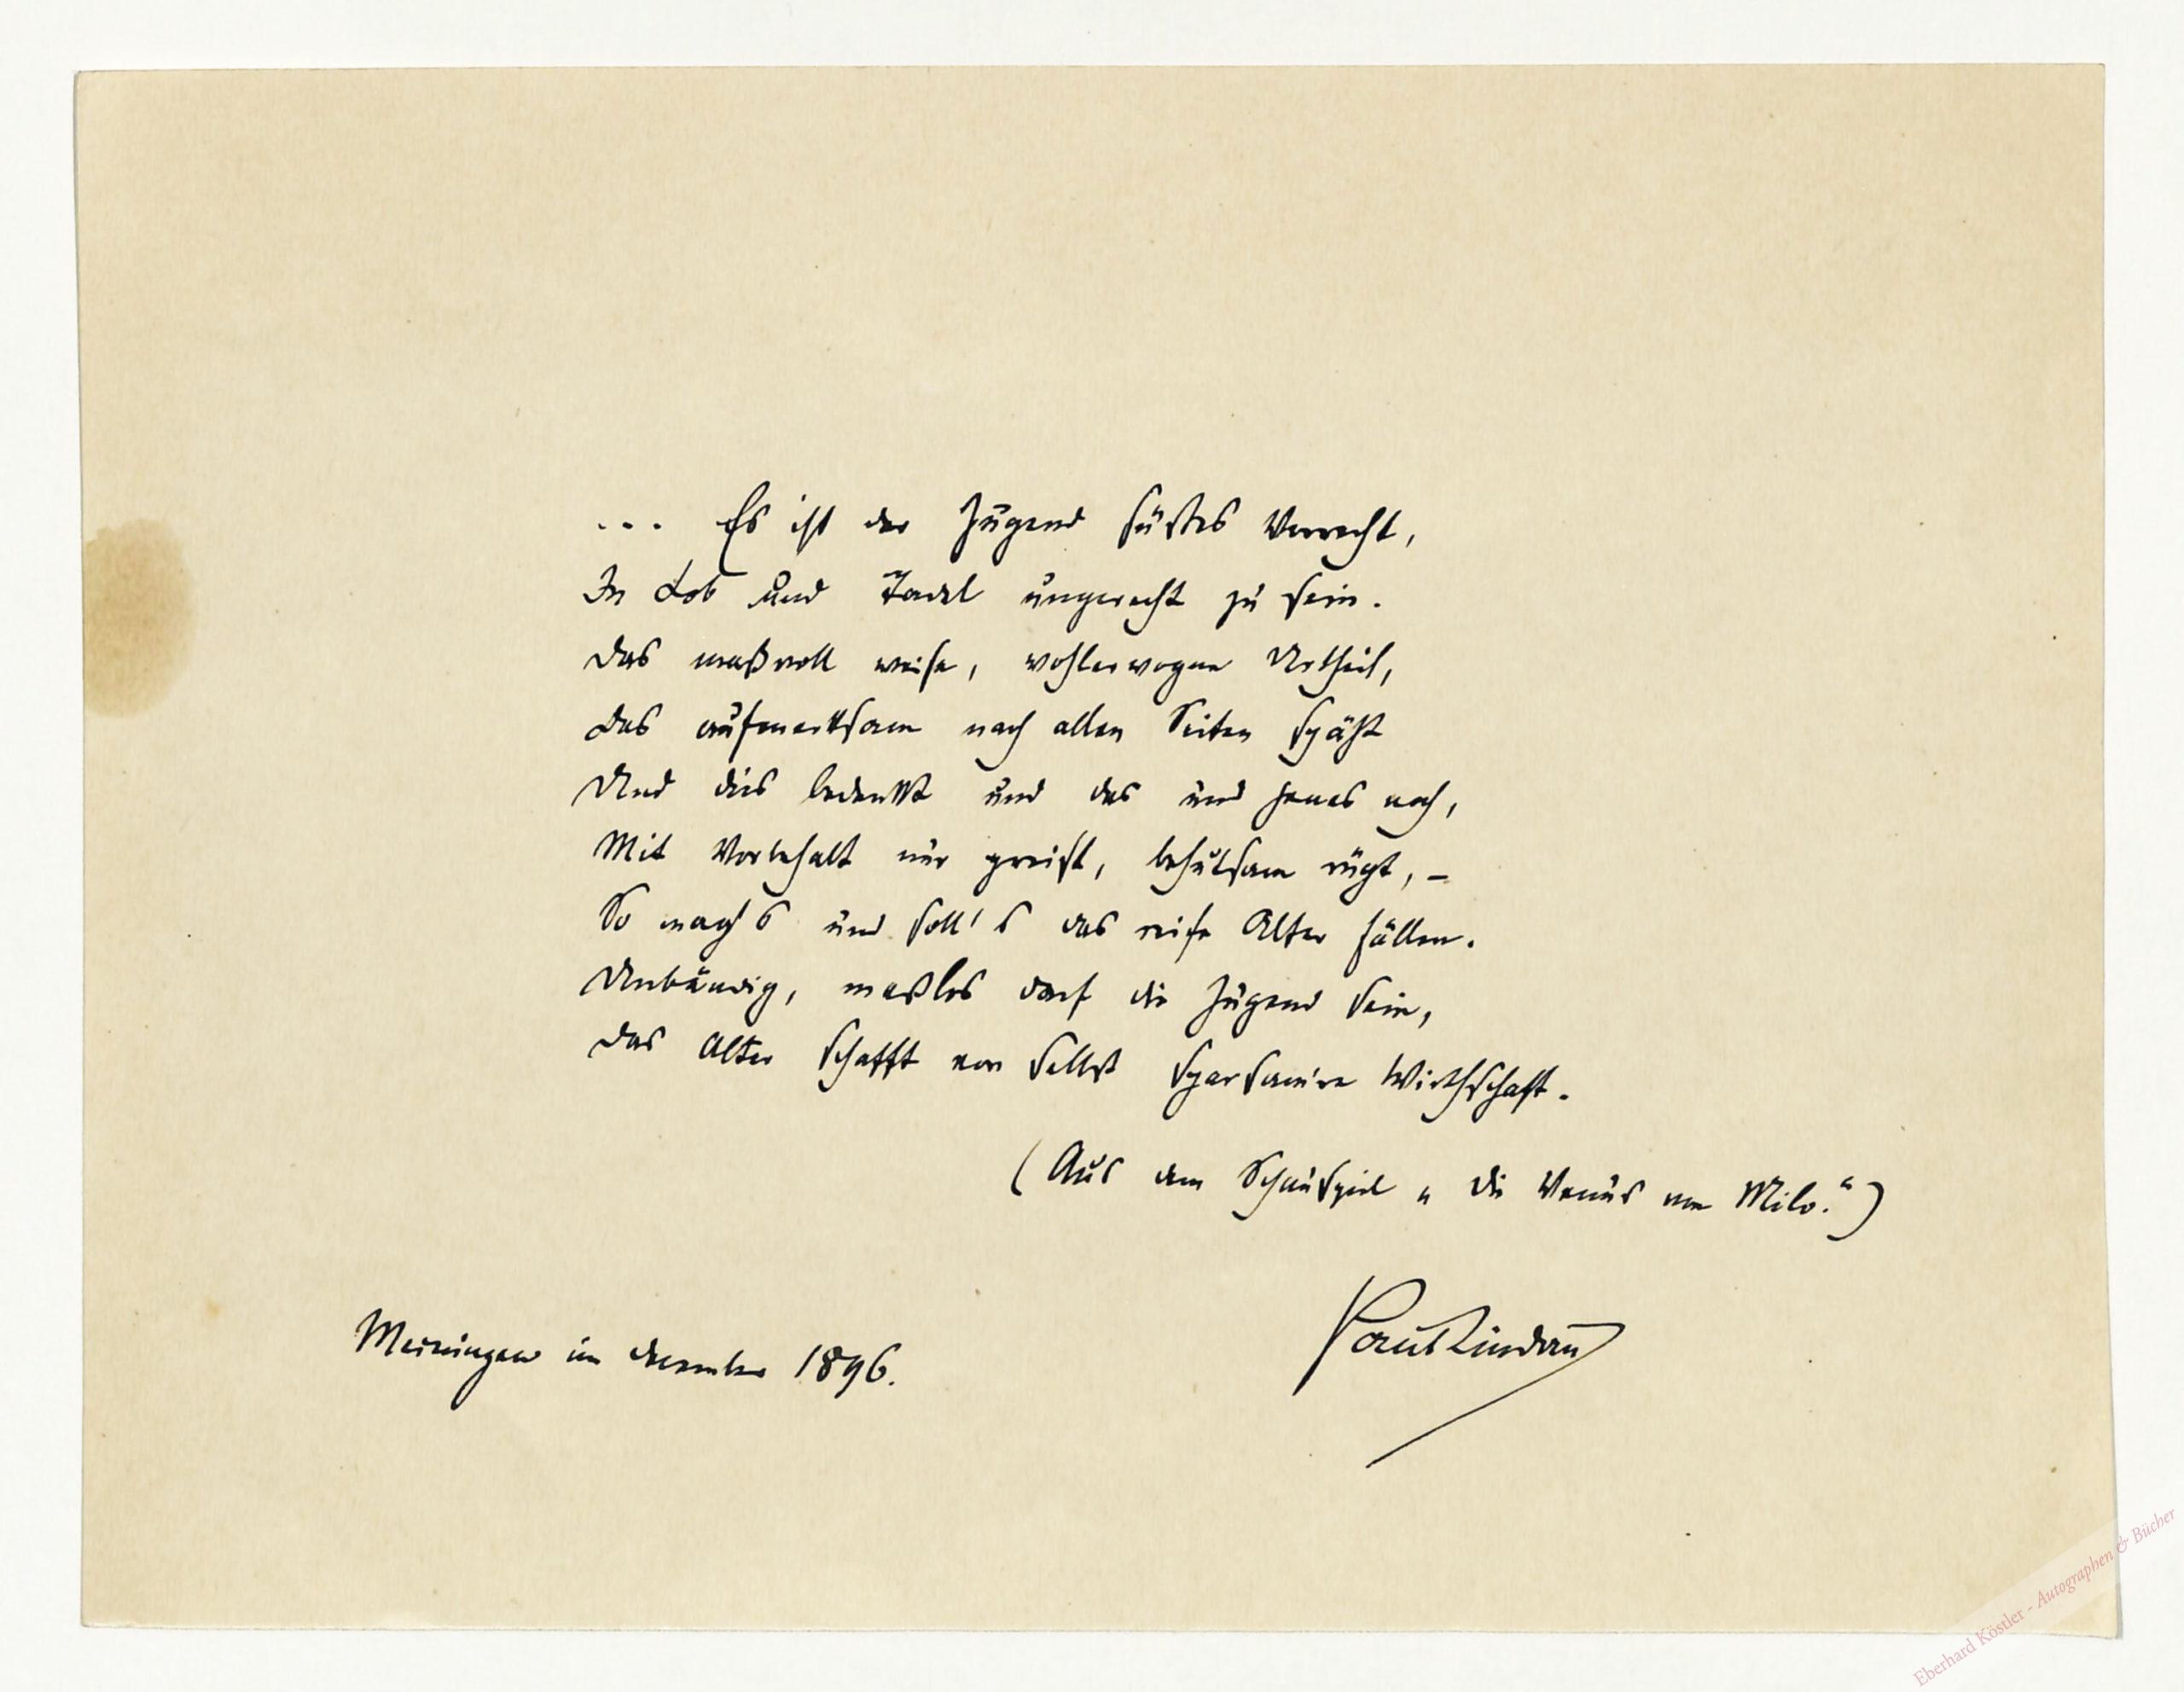 ... Es ist der Jugend süßtes Vorrecht,
In Lob und Tadel ungerecht zu sein.
Das maßvoll weise, wohlerwogne Urtheil,
Das aufmerksam nach allen Seiten späht
Und dies bedenkt und das und jenes noch,
Mit Vorbehalt nur preist, behutsam rügt, –
So mag's und soll's das reife Alter fällen.
Unbändig, maßlos darf die Jugend sein,
Das Alter schafft von selbst sparsam're Wirthschaft.
(Aus dem Schauspiel „Die Venus von Milo.“)
Paul Lindau
Meiningen im December 1896.
Eberhard Köstler - Autographen & Bücher